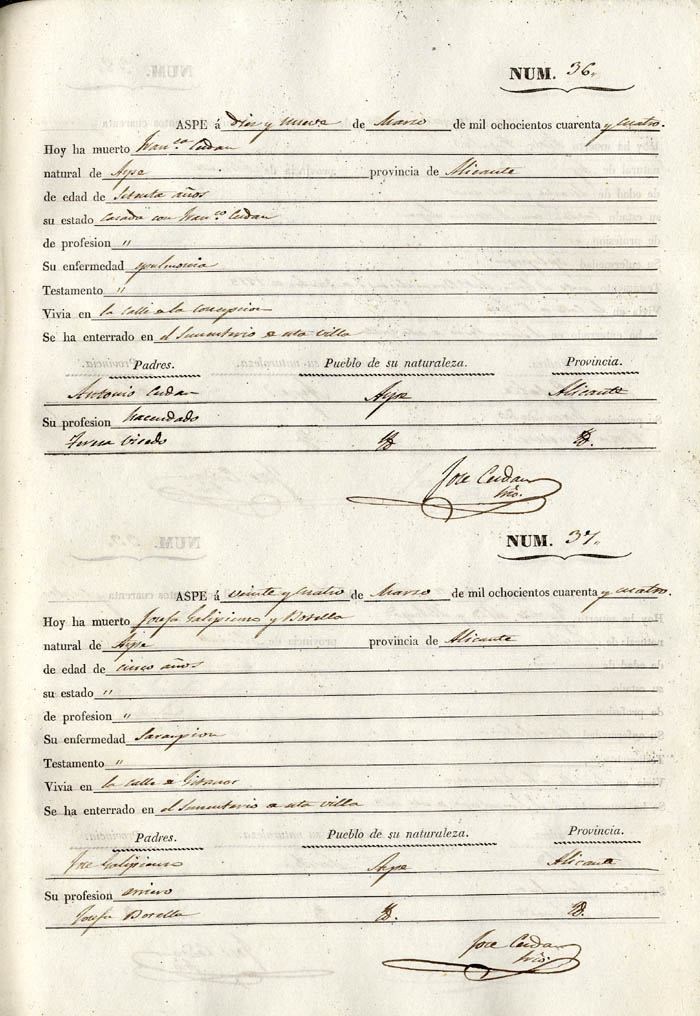 NUM. 36.
ASPE á Diez y nueve de Marzo de mil ochocientos cuarenta y cuatro.
Hoy ha muerto Fran.ca Cerdan
natural de Aspe provincia de Alicante
de edad de setenta años
su estado casada con Fran.co Cerdan
de profesion "
Su enfermedad pulmonia
Testamento "
Vivia en la calle de la Concepcion
Se ha enterrado en el Sementerio de esta villa
Padres. Pueblo de su naturaleza. Provincia.
Antonio Cerdan Aspe Alicante
Su profesion hacendado
Teresa Vicedo Yd. Yd.
Jose Cerdan
Srio.
NUM. 37.
ASPE á veinte y cuatro de Marzo de mil ochocientos cuarenta y cuatro.
Hoy ha muerto Josefa Galipienso y Botella
natural de Aspe provincia de Alicante
de edad de cinco años
su estado "
de profesion "
Su enfermedad Sarampion
Testamento "
Vivia en la calle de Gitanos
Se ha enterrado en el Sementerio de esta villa
Padres. Pueblo de su naturaleza. Provincia.
Jose Galipienso Aspe Alicante
Su profesion arriero
Josefa Botella Yd. Yd.
Jose Cerdan
Srio.